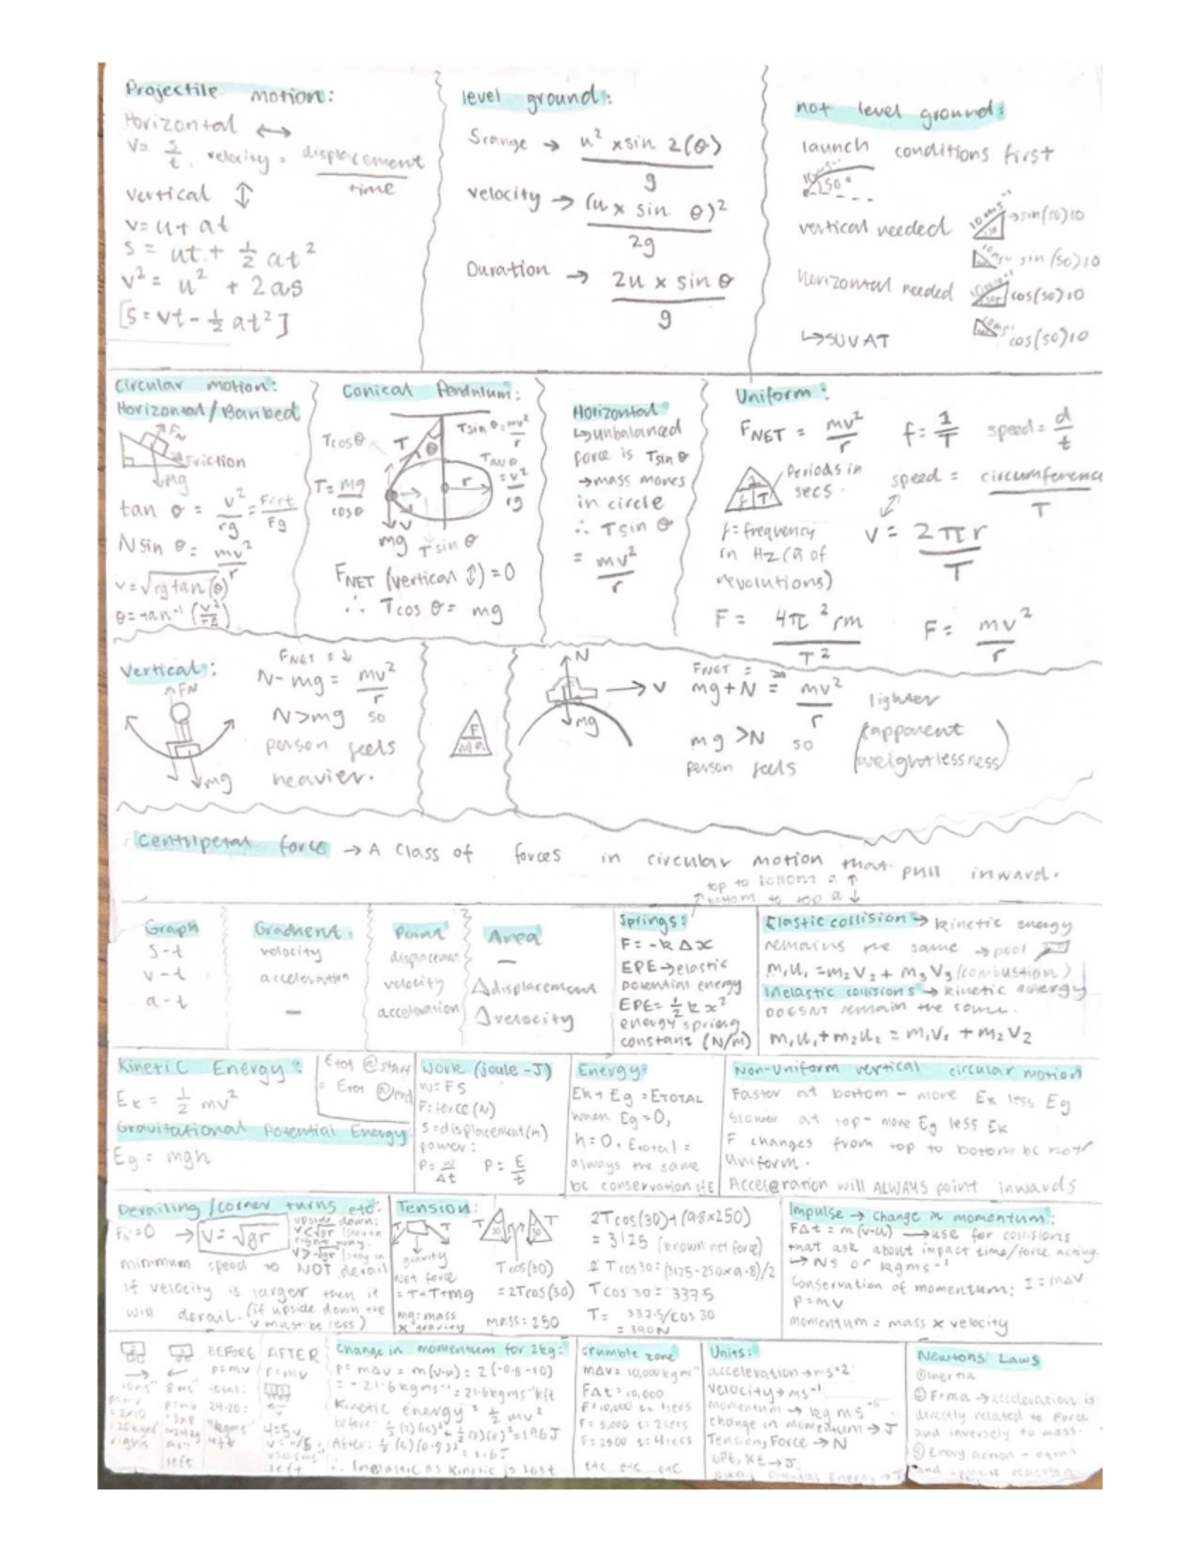 Projectile motion:
Horizontal ↔
v= s/t . velocity = displacement/time
vertical ↕
v= u+ at
s = ut + 1/2 at²
v² = u² + 2as
[s = vt - 1/2 at²]
level ground:
Srange → u² x sin 2(θ)/g
velocity → (u x sin θ)²/2g
Duration → 2u x sin θ/g
not level ground:
launch conditions first
50°
vertical needed
sin(50)10
sin (50)10
horizontal needed
cos(50)10
cos(50)10
↳SUVAT
Circular motion:
Horizontal/Banked
FN
Friction
mg
tan θ = v²/rg = Fnet/Fg
N sin θ = mv²/r
v = √rg tan(θ)
θ = tan⁻¹
Conical Pendulum:
Tcosθ
T
θ
Tsin θ = mv²/r
Tan θ = v²/rg
T = mg/cosθ
r
mg
Tsin θ
FNET (vertical ↕) = 0
∴ Tcos θ = mg
Horizontal
↳unbalanced
force is Tsin θ
→mass moves
in circle
∴ Tsin θ
= mv²/r
Uniform:
FNET = mv²/r f = 1/T speed = d/t
Periods in
secs.
speed = circumference/T
f = frequency
in Hz (# of
revolutions)
v = 2πr/T
F = 4π²rm/T² F = mv²/r
Vertical:
FN
mg
FNET =
N- mg = mv²/r
N>mg so
person feels
heavier.
F
ma
N
v
mg
FNET =
mg+N = mv²/r
mg >N so
person feels
lighter
(apparent
weightlessness)
Centripetal force → A class of forces in circular motion that pull inward.
top to bottom a ↑
↑bottom to top a ↓
Graph
s-t
v-t
a-t
Gradient:
velocity
acceleration
—
Point
displacement
velocity
acceleration
Area
—
Δdisplacement
Δvelocity
Springs:
F = -kΔx
EPE→elastic
potential energy
EPE = 1/2 kx²
energy spring
constant (N/m)
Elastic collision → kinetic energy
remains the same → pool
m₁u₁ = m₂v₂ + m₃v₃ (combustion)
Inelastic collisions → kinetic energy
DOESNT remain the same.
m₁u₁ + m₂u₂ = m₁v₁ + m₂v₂
Kinetic Energy:
Ek = 1/2 mv²
Etot @ start
= Etot @ end
Gravitational Potential Energy
Eg = mgh
Work (joule - J)
W = FS
F = force (N)
s = displacement (m)
power:
P = W/Δt P = E/t
Energy:
Ek + Eg = ETOTAL
when Eg = 0,
h = 0. Etotal =
always the same
bc conservation of E
Non-Uniform vertical circular motion
Faster at bottom - more Ek less Eg
slower at top - more Eg less Ek
F changes from top to bottom bc not
uniform.
Acceleration will ALWAYS point inwards
Derailing/corner turns etc:
→ v = √gr
upside down:
minimum speed to NOT derail
if velocity is larger then it
will derail. (if upside down the
v must be less)
Tension:
T T
gravity
Net force
= T+T+mg
mg = mass
x gravity
T T
Tcos(30)
= 2Tcos(30)
mass: 250
2Tcos(30) + (9.8x250)
= 3125 (known net force)
2 Tcos30 = (3125-250x9.8)/2
Tcos 30 = 337.5
T = 337.5/cos 30
= 390N
Impulse → change in momentum:
FΔt = m(v-u) → use for collisions
that ask about impact time/force acting.
→ Ns or kgms⁻¹
Conservation of momentum: I = mΔv
p = mv
momentum = mass x velocity
BEFORE
p = mv
AFTER
p = mv
left
right
left
Change in momentum for 2kg:
p = mΔv = m(v-u) = 2(-0.8-10)
= -21.6 kgms⁻¹ = 21.6kgms⁻¹ left
Kinetic energy = 1/2 mv²
∴ Inelastic as kinetic is lost
crumble zone
mΔv = 10,000 kgms⁻¹
FΔt = 10,000
etc etc etc
Units:
acceleration → ms⁻²
velocity → ms⁻¹
momentum → kgms⁻¹
change in momentum → J
Tension, Force → N
GPE, KE → J
Newtons Laws
① Inertia
② F=ma → acceleration is
directly related to force
and inversely to mass.
③ Every action - equal
and opposite reaction